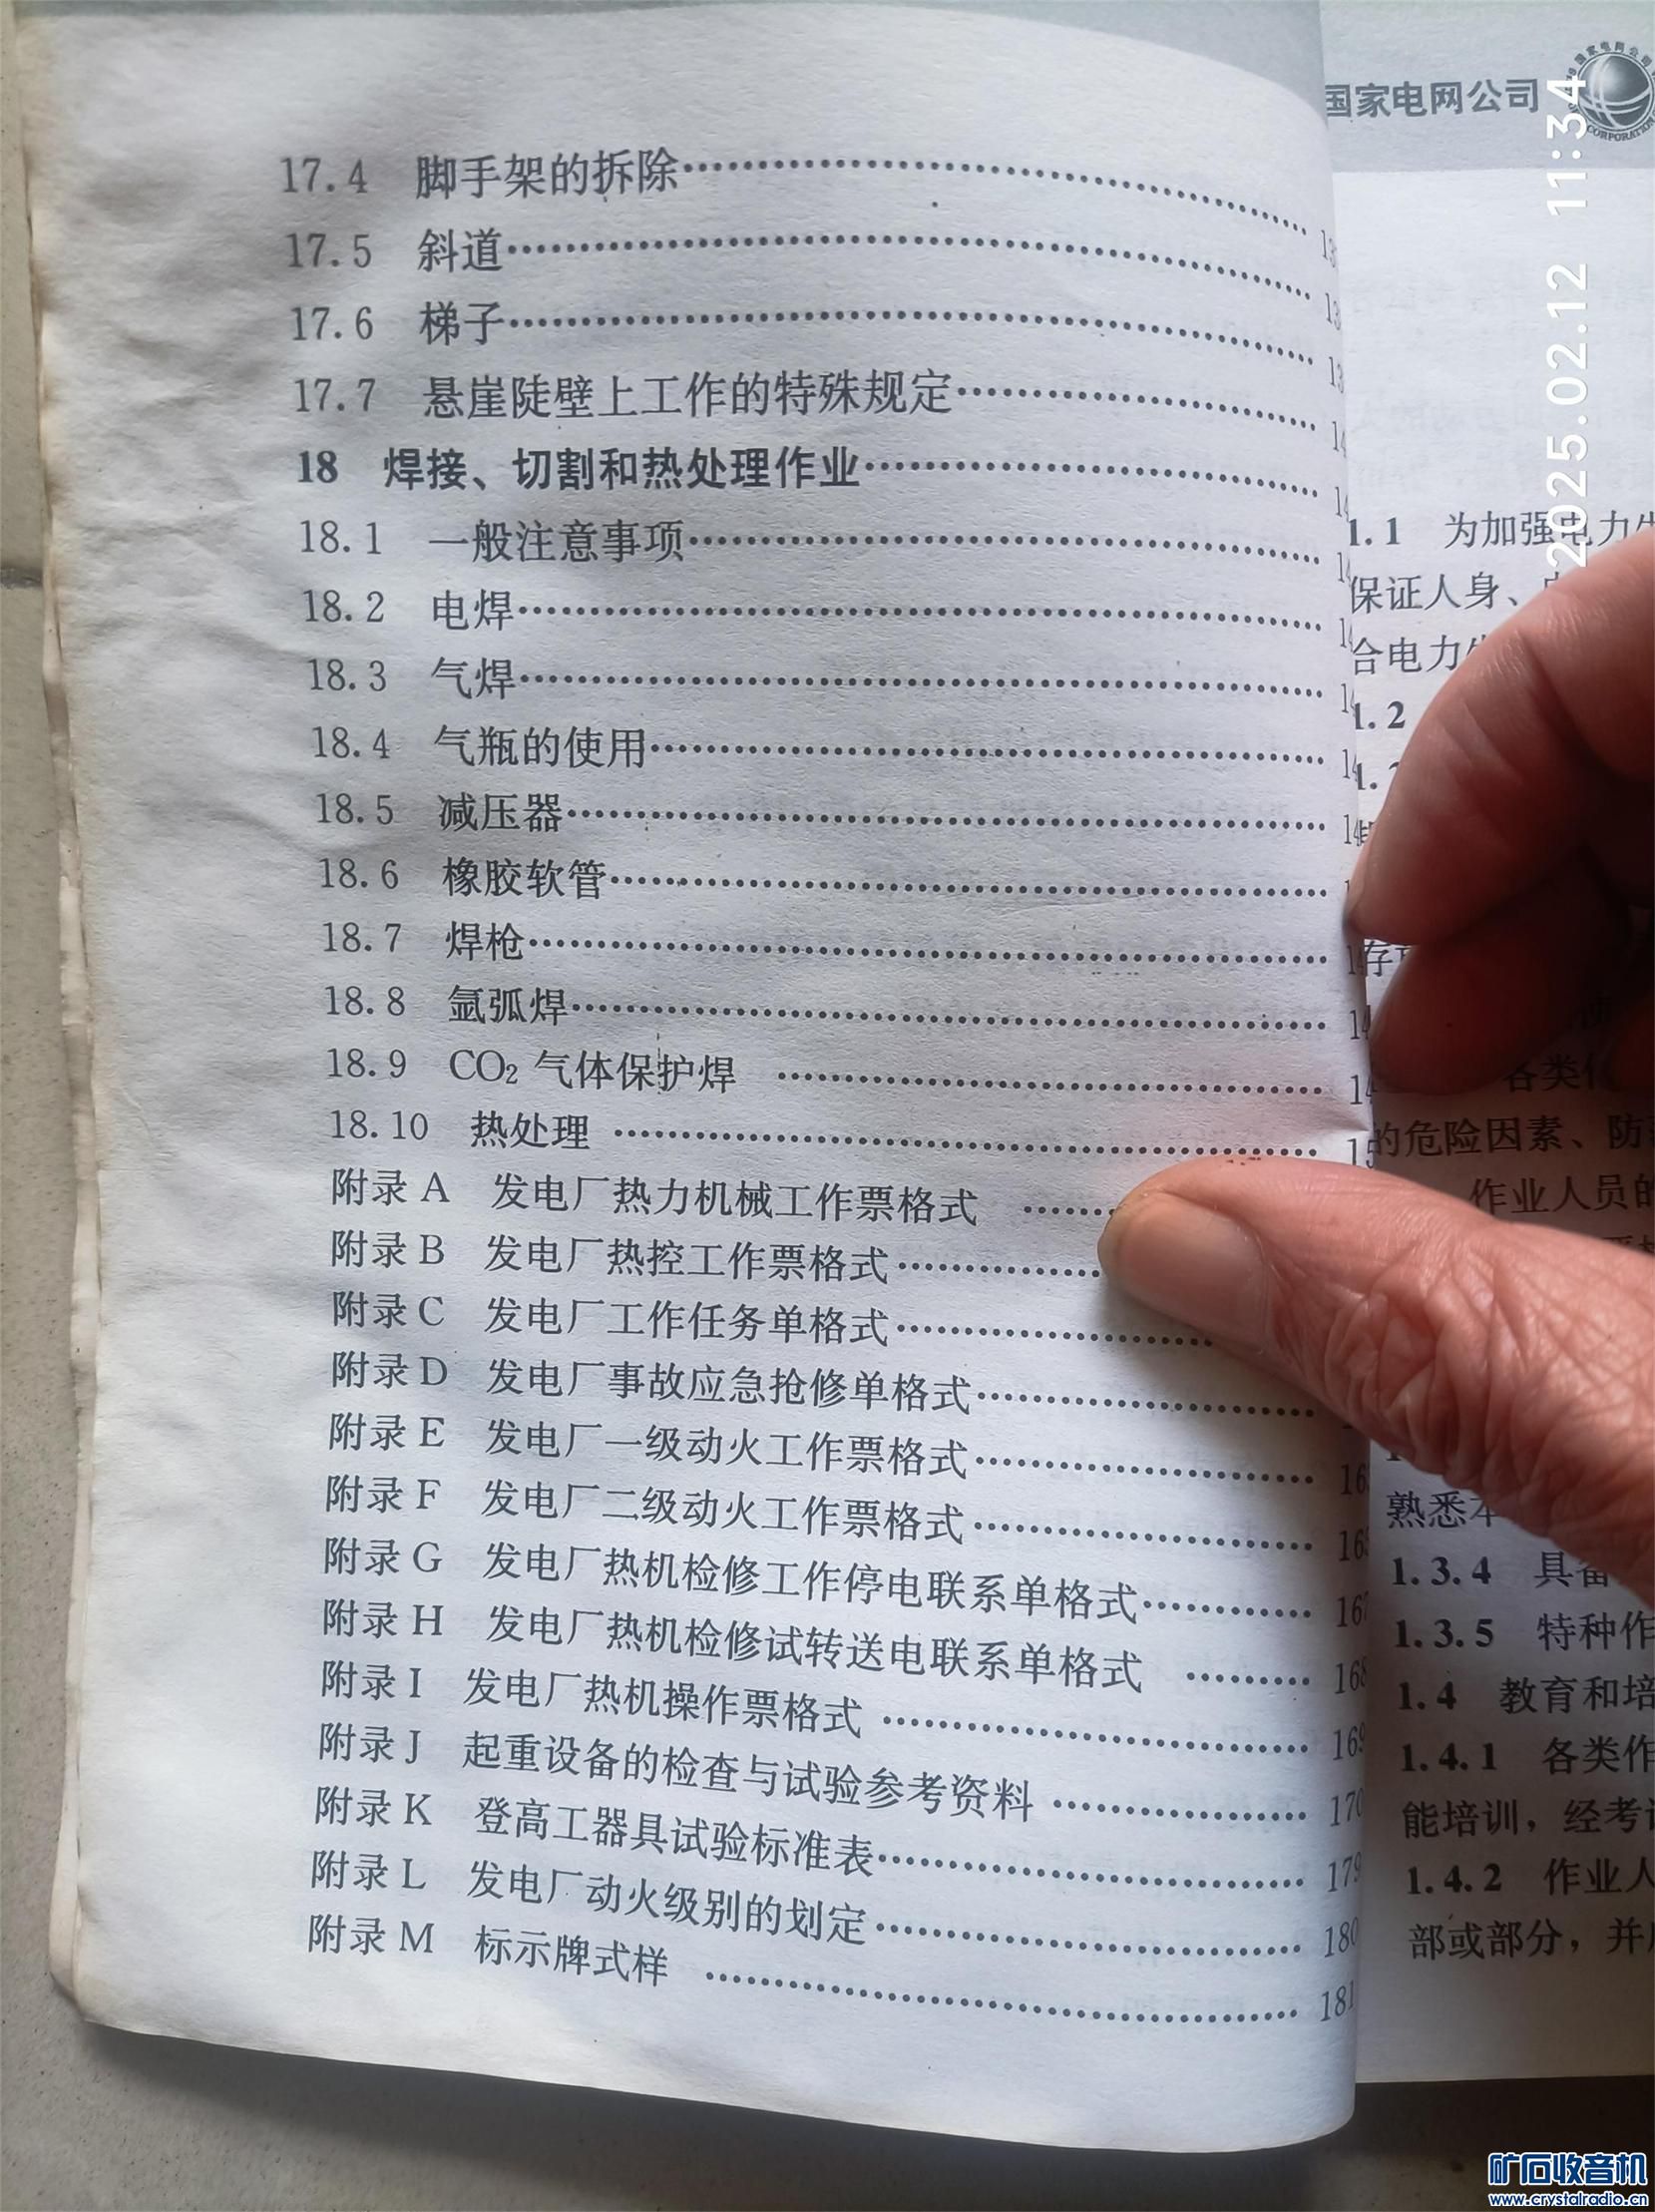 17.4 脚手架的拆除
17.5 斜道
17.6 梯子
17.7 悬崖陡壁上工作的特殊规定
18 焊接、切割和热处理作业
18.1 一般注意事项
18.2 电焊
18.3 气焊
18.4 气瓶的使用
18.5 减压器
18.6 橡胶软管
18.7 焊枪
18.8 氩弧焊
18.9 CO₂ 气体保护焊
18.10 热处理
附录 A 发电厂热力机械工作票格式
附录 B 发电厂热控工作票格式
附录 C 发电厂工作任务单格式
附录 D 发电厂事故应急抢修单格式
附录 E 发电厂一级动火工作票格式
附录 F 发电厂二级动火工作票格式
附录 G 发电厂热机检修工作停电联系单格式 167
附录 H 发电厂热机检修试转送电联系单格式 168
附录 I 发电厂热机操作票格式 169
附录 J 起重设备的检查与试验参考资料 170
附录 K 登高工器具试验标准表 179
附录 L 发电厂动火级别的划定 180
附录 M 标示牌式样 181
国家电网公司
1.1 为加强电力
保证人身、
合电力
1.2
各类
的危险因素、防
作业人员的
熟悉本
1.3.4 具备
1.3.5 特种作
1.4 教育和培
1.4.1 各类作
能培训，经考
1.4.2 作业人
部或部分，并
2025.02.12 11:34
矿石收音机
www.crystalradio.cn